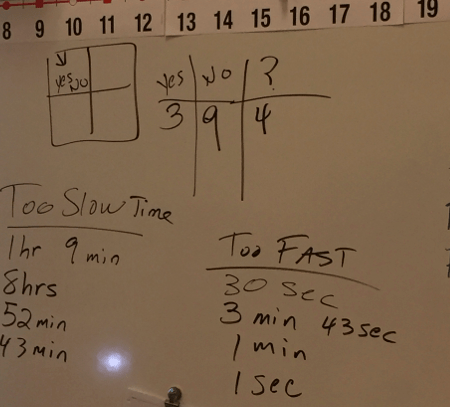 8 9 10 11 12 13 14 15 16 17 18 19
yes NO
yes NO ?
3 9 4
Too Slow Time
1hr 9 min
8hrs
52min
43 min
Too FAST
30 sec
3 min 43sec
1 min
1 sec